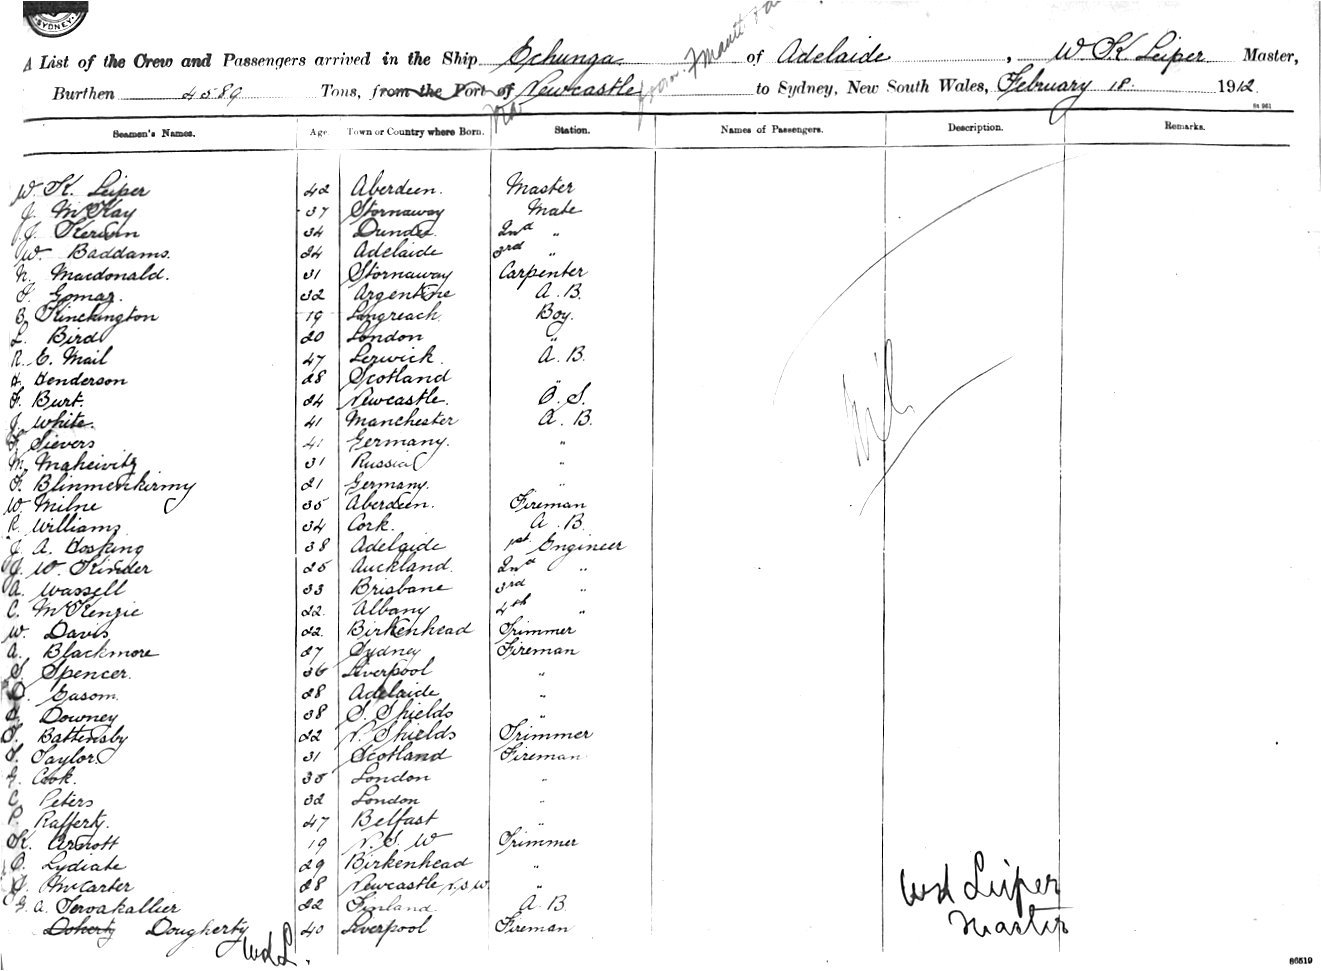 SYDNEY
A List of the Crew and Passengers arrived in the Ship Echunga of Adelaide, W. K. Leiper Master,
Burthen 4589 Tons, from the Port of Newcastle to Sydney, New South Wales, February 18 1912.
via
from
86 961
Seamen's Names. Age Town or Country where Born. Station. Names of Passengers. Description. Remarks.
W. K. Leiper 42 Aberdeen. Master
J. McKay 37 Stornaway Mate
J. Kerwin 34 Dundee 2nd "
W. Baddams. 24 Adelaide 3rd "
N. Macdonald. 31 Stornaway Carpenter
F. Gomaz. 32 Argentine A. B.
B. Kinchington 19 Longreach. Boy.
L. Bird 20 London "
R. E. Mail 47 Lerwick. A. B.
H. Henderson 28 Scotland "
F. Burt. 24 Newcastle. O. S.
J. White. 41 Manchester A. B.
F. Sievers 41 Germany. "
M. Maheivitz 31 Russia "
F. 21 Germany. "
W. Milne 35 Aberdeen. Fireman
R. Williams 34 Cork. A. B.
J. A. Hosking 38 Adelaide 1st Engineer
J. W. Kinder 25 Auckland. 2nd "
A. Wassell 33 Brisbane 3rd "
C. McKenzie 22. Albany 4th "
W. Davis 22. Birkenhead Trimmer
A. Blackmore 27 Sydney Fireman
S. Spencer. 36 Liverpool "
Gasom. 28 Adelaide "
Downey 38 S. Shields "
T. Battensby 22 N. Shields Trimmer
T. Taylor. 31 Scotland Fireman
G. Cook. 35 London "
C. Peters 32 London "
P. Rafferty. 47 Belfast "
K. Arnott 19 N. S. W Trimmer
O. Lydiate 29 Birkenhead "
McCarter 28 Newcastle N.S.W. "
G. A. Tervakallier 22 Finland. A. B.
Doherty Dougherty 40 Liverpool Fireman
W.K.L.
Nil
WK Leiper
Master
86519